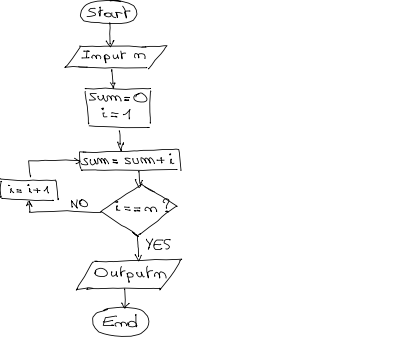 Start
Input n
sum=0
i=1
sum=sum+i
i=i+1
NO
i==n?
YES
Output n
End